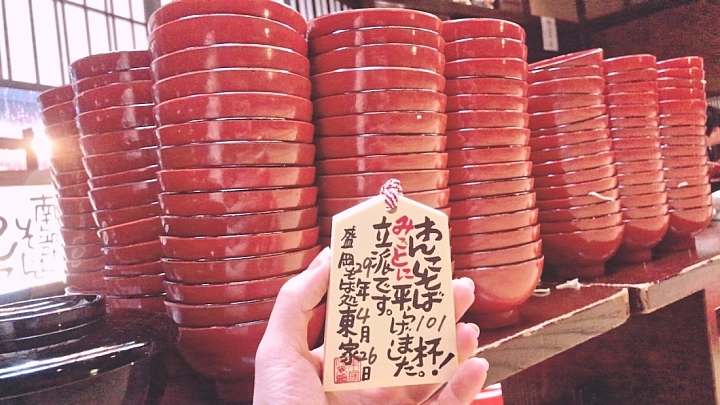 わんこそば101杯!!
みごとに平らげました。
立派です。
29年4月26日
盛岡そば処東家
南部